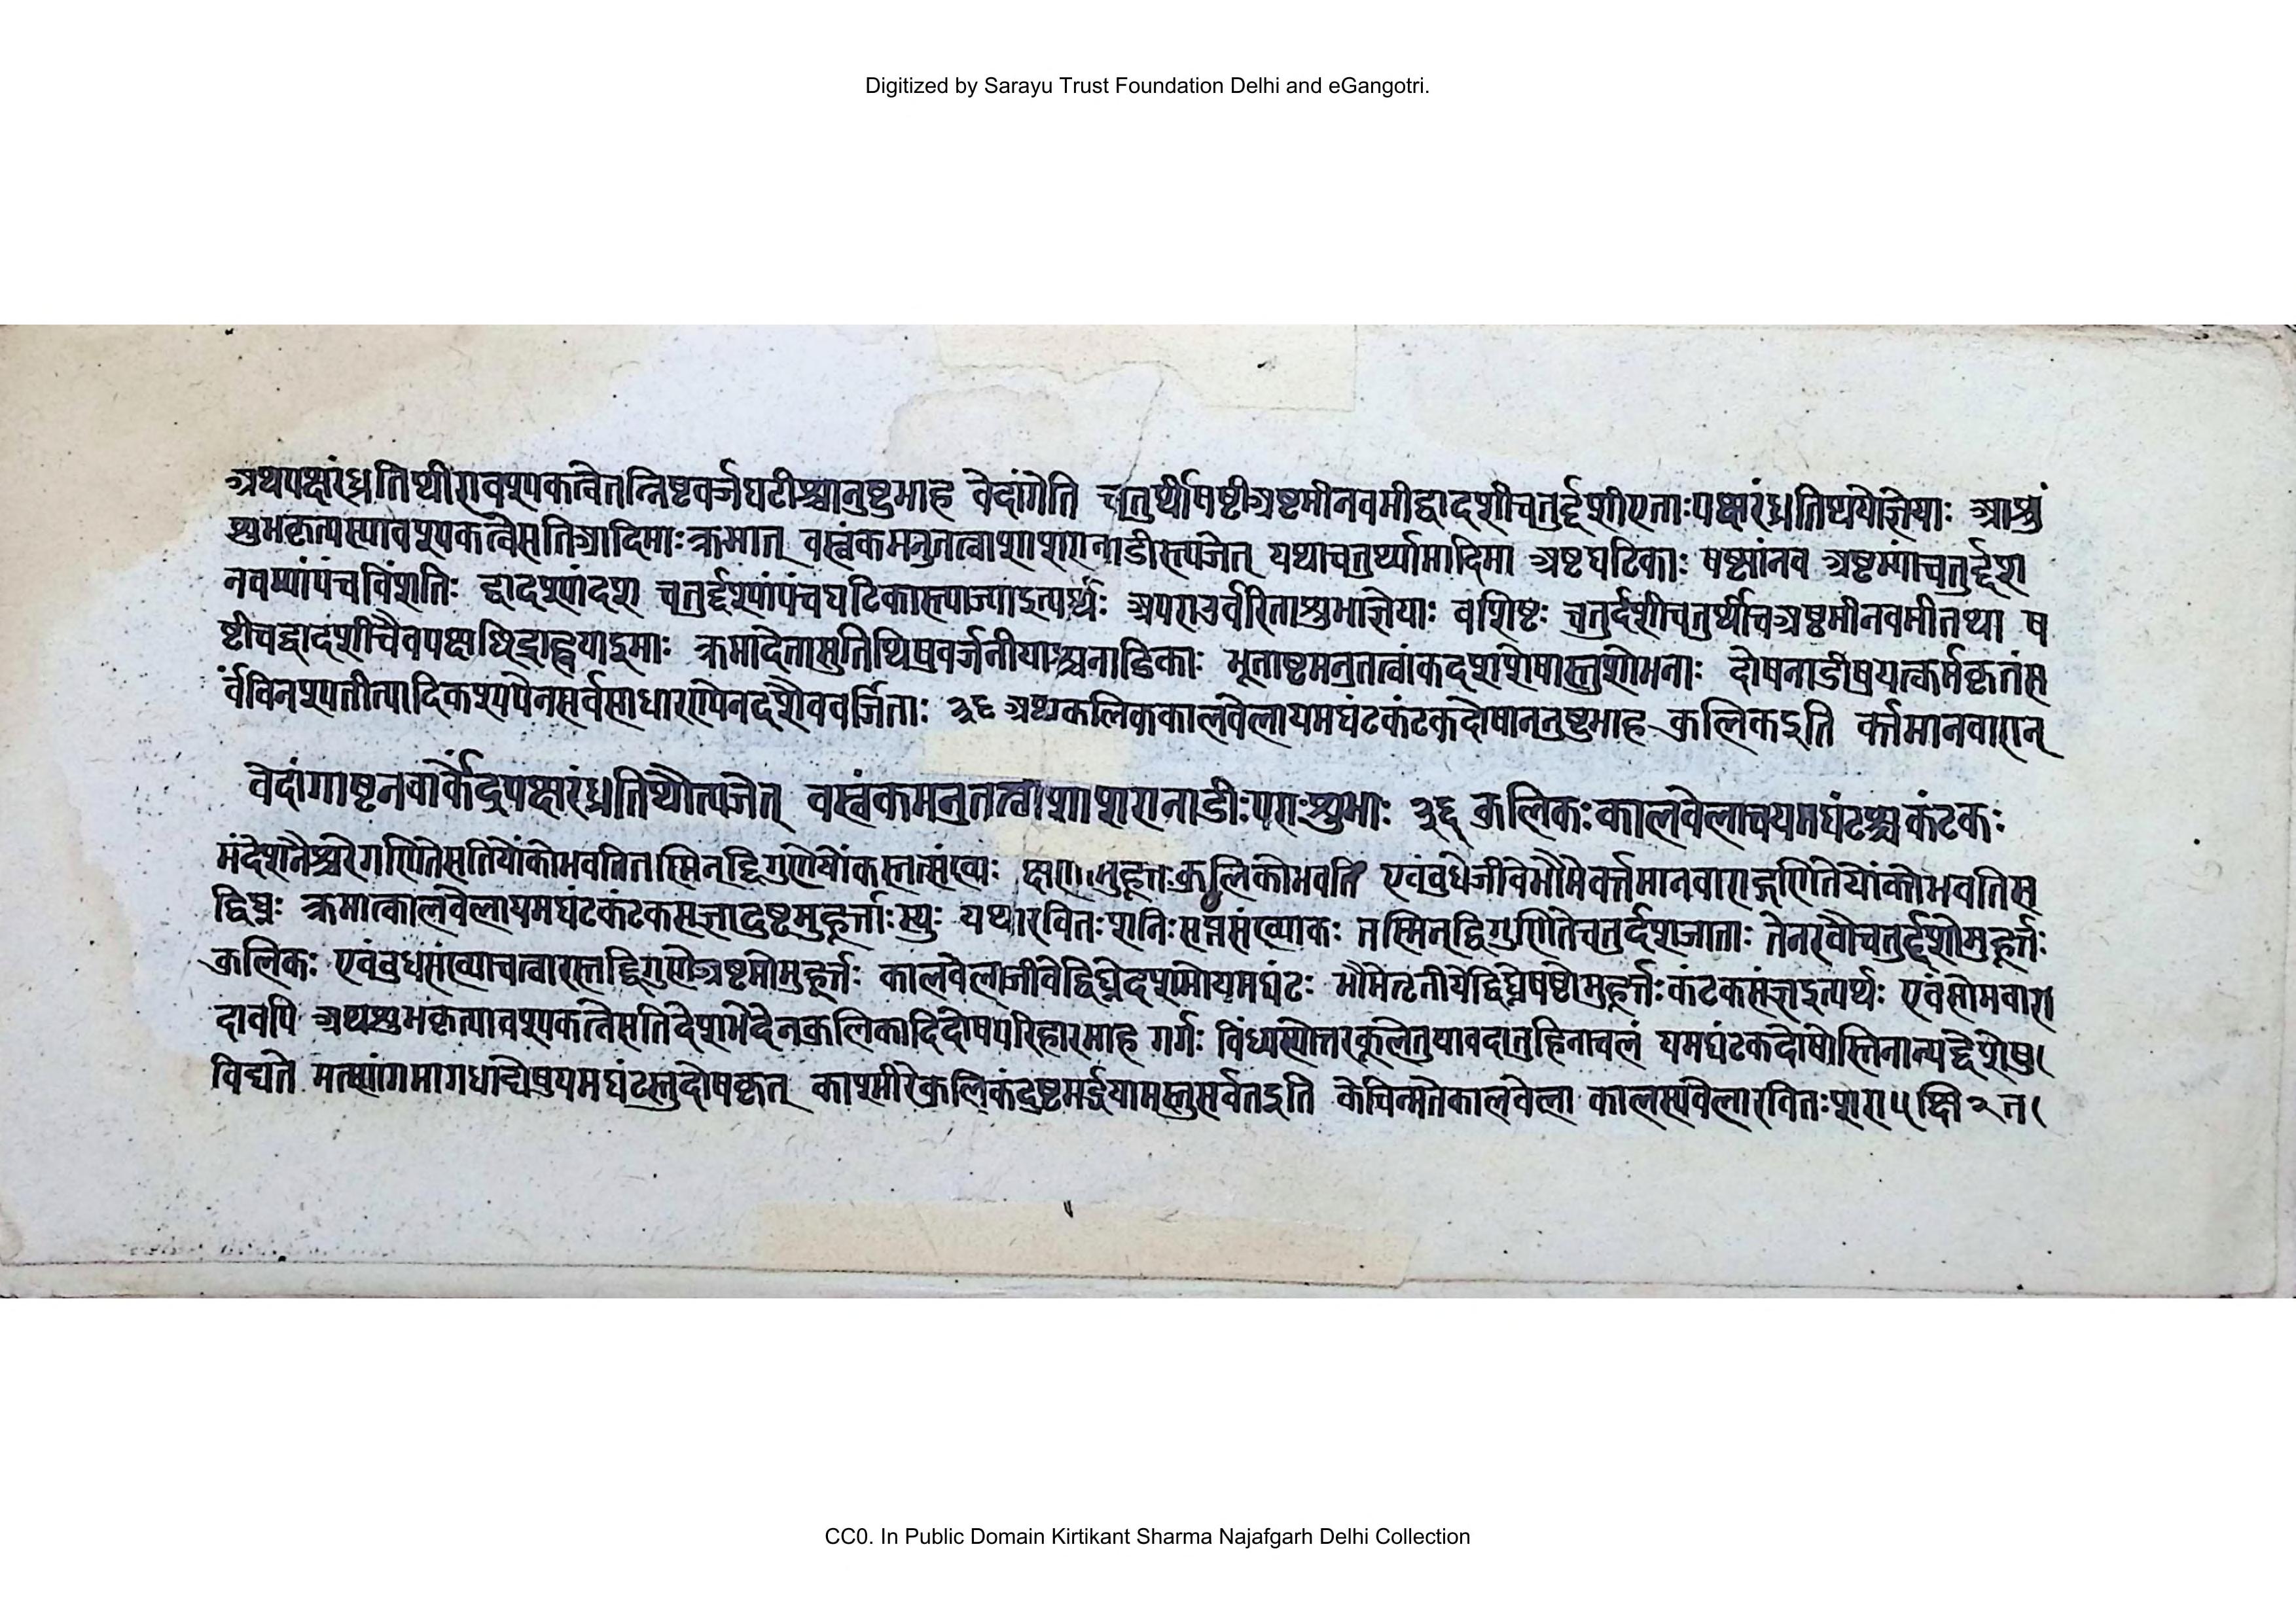 Digitized by Sarayu Trust Foundation Delhi and eGangotri.
अथपक्षरंध्रतिथीरावश्यकत्वेतन्निष्टवर्जघटीश्चानुष्टुभाह वेदांगेति चतुर्थीषष्टीअष्टमीनवमीद्वादशीचतुर्द्दशीएताःपक्षरंध्रतिथयोज्ञेयाः आशुं
शुभकृत्यस्यावश्यकत्वेसतिआदिमाःक्रमात् वस्वंकमनुतत्वाशाशरानाडीस्त्यजेत् यथाचतुर्थ्यामादिमा अष्टघटिकाः षष्ट्यांनव अष्टम्यांचतुर्द्दश
नवम्यांपंचविंशतिः द्वादश्यांदश चतुर्द्दश्यांपंचघटिकास्त्याज्याइत्यर्थः अपराउर्वरिताशुभाज्ञेयाः वशिष्टः चतुर्दशीचतुर्थीचअष्टमीनवमीतथा ष
ष्टीचद्वादशीचैवपक्षछिद्राह्वयाइमाः क्रमादेतासुतिथिषुवर्जनीयाश्चनाडिकाः भूताष्टमनुतत्वांकदशशेषास्तुशोभनाः दोषनाडीषुयत्कर्मकृतंस
र्वंविनश्यतीत्यादिकश्यपेनसर्वसाधारण्येनदशैववर्जिताः ३६ अथकुलिककालवेलायमघंटकंटकदोषाननुष्टुभाह कुलिकइति वर्त्तमानवारान्
वेदांगाष्टनवार्केंद्रपक्षरंध्रतिथौत्यजेत् वस्वंकमनुतत्वाशाशरानाडीःपराःशुभाः ३६ कुलिकःकालवेलाचयमघंटश्चकंटकः
मंदेशनैश्चरेगणितेसतियोंकोभवतितस्मिन्द्विगुणेयोंकस्तत्संख्यः क्षणोमुहूर्त्तःकुलिकोभवति एवंबुधेजीवेभौमेवर्त्तमानवाराद्गणितेयोंकोभवतिस
द्विघ्नः क्रमात्कालवेलायमघंटकंटकसंज्ञादुष्टमुहूर्त्ताःस्युः यथारवितःशनिःसप्तसंख्याकः तस्मिन्द्विगुणितेचतुर्दशजाताः तेनरवौचतुर्द्दशोमुहूर्त्तः
कुलिकः एवंबुधसंख्याचत्वारस्तद्द्विगुणोअष्टमोमुहूर्त्तः कालवेलाजीवेद्विघ्नेदशमोयमघंटः भौमेतृतीयेद्विघ्नेषष्टोमुहूर्त्तःकंटकसंज्ञइत्यर्थः एवंसोमवारा
दावपि अथशुभकृत्यावश्यकत्वेसतिदेशभेदेनकुलिकादिदोषपरिहारमाह गर्गः विंध्यस्योत्तरकूलेतुयावदातुहिनाचलं यमघंटकदोषोस्तिनान्यद्देशेषु
विद्यते मत्स्यांगमागधांध्रेषुयमघंटस्तुदोषकृत् काश्मीरेकुलिकंदुष्टमर्द्धयामस्तुसर्वतइति केचिन्मतेकालवेला कालस्यवेलारवितःशरा५क्षि२त
CC0. In Public Domain Kirtikant Sharma Najafgarh Delhi Collection